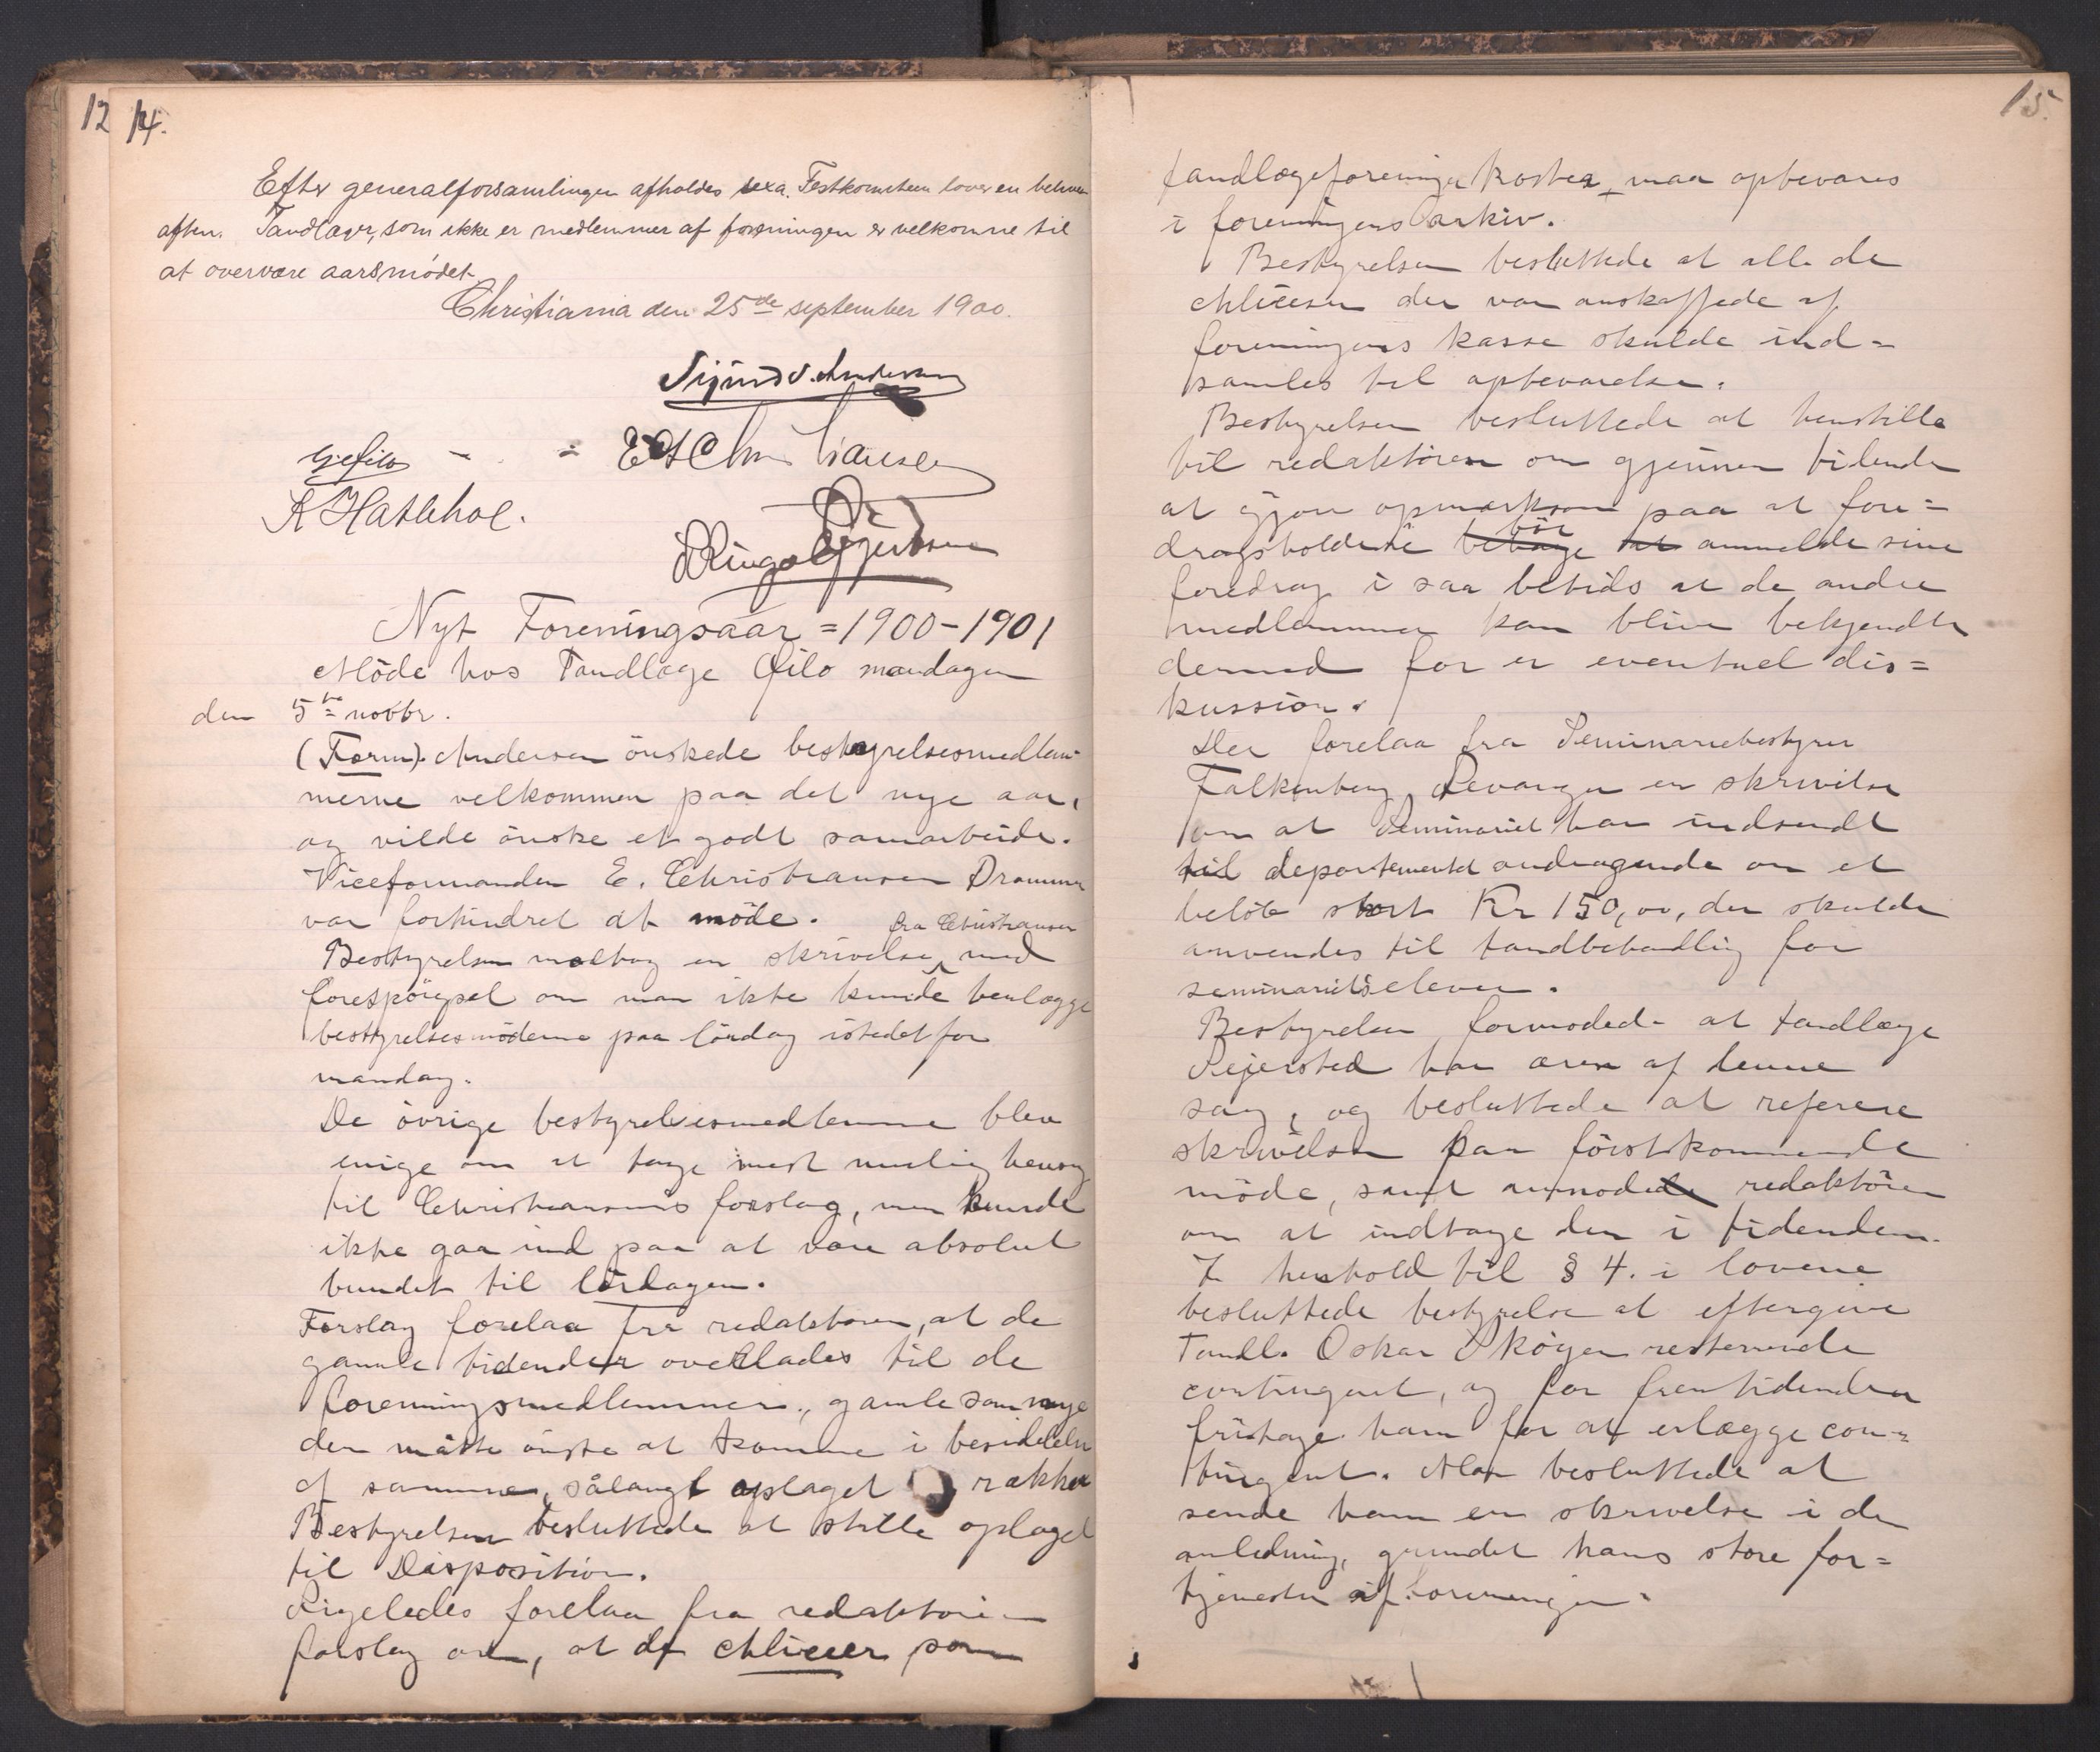 12 14.
Efter generalforsamlingen afholdes sexa. Festkomiteen lover en
aften. Tandlæger, som ikke er medlemmer af foreningen er velkomne til
at overvære aarsmødet.
Christiania den 25de september 1900.
Sigurd S. Andersen
E Christiansen
K Hatlehol.
Nyt Foreningsaar = 1900-1901
Møde hos Tandlæge Qvilo mandagen
den 5te novbr.
(Form). Andersen ønskede bestyrelsesmedlem-
merne velkommen paa det nye aar,
og vilde ønske et godt samarbeide.
Viceformanden E. Christiansen Drammen
var forhindret at møde.
fra Christiansen
Bestyrelsen modtog en skrivelse med
forespørgsel om man ikke kunde henlægge
bestyrelsesmøderne paa lørdag istedetfor
mandag.
De øvrige bestyrelsesmedlemme blev
enige om at tage mest mulig hensyn
til Christiansens forslag, men kunde
ikke gaa ind paa at være absolut
bundet til lørdagen.
Forslag forelaa fra redaktøren, at de
gamle tidender overlades til de
foreningsmedlemmer, gamle som nye
der måtte ønske at komme i besiddelse
af samme, sålangt oplaget rækker
Bestyrelsen besluttede at stille oplaget
til Disposition.
Ligeledes forelaa fra redaktøren
forslag om, at de chliceer som
15.
tandlægeforeningen koster, maa opbevares
i foreningens arkiv.
Bestyrelsen besluttede at alle de
chliceer der var anskaffede af
foreningens kasse skulde ind=
samles til opbevarelse.
Bestyrelsen besluttede at henstille
til redaktøren om gjennem tidende
at gjøre opmærksom paa at fore=
dragsholderne bør anmelde sine
foredrag i saa betids at de andre
medlemmer kan blive bekjendte
dermed for en eventuel dis=
kussion.
Der forelaa fra Seminariebestyrer
Falkenberg, Levanger en skrivelse
om at Seminariet har indsendt
til departementet andragende om et
beløb stort Kr 150,00, der skulde
anvendes til tandbehandling for
seminariets elever.
Bestyrelsen formodede at tandlæge
Reiersted har æren af denne
sag, og besluttede at referere
skrivelsen paa førstkommende
møde, samt anmode redaktøren
om at indtage den i tidenden.
I henhold til § 4. i lovene
besluttede bestyrelse at eftergive
Tandl. Oskar Skøyen resterende
contingent, og for fremtidenden
fritage ham for at erlægge con=
tingent. Man besluttede at
sende ham en skrivelse i den
anledning, grundet hans store for=
tjenester af foreningen.